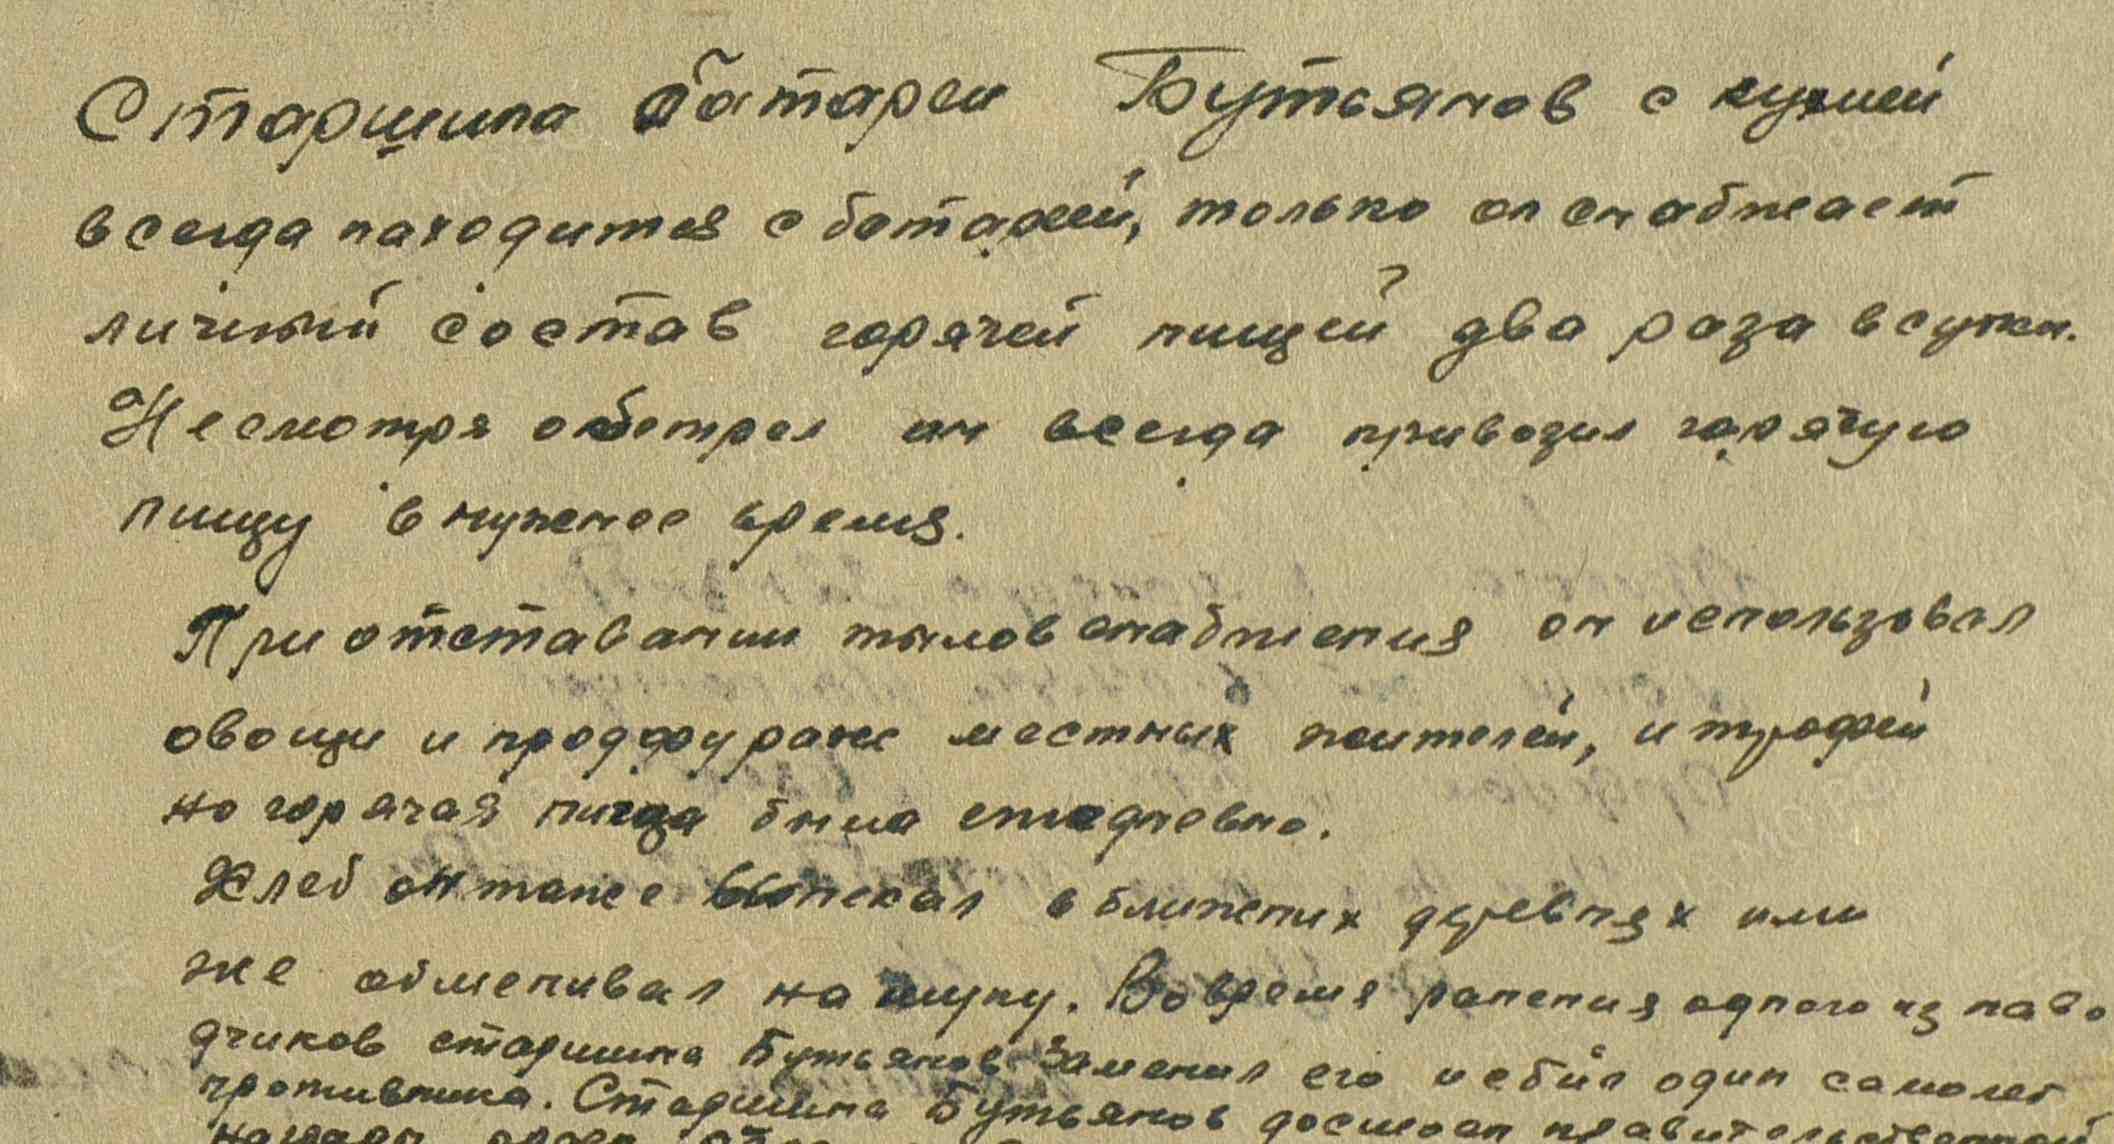 Старшина батареи Бутьянов с кухней
всегда находится с батареей, только он снабжает
личный состав горячей пищей два раза в сутки.
Несмотря обстрел он всегда привозил горячую
пищу в нужное время.
При отставании тылов снабжения он использовал
овощи и продфураж местных жителей, и трофей
но горячая пища была ежедневно.
Хлеб он также выпекал в ближених деревнях или
же обменивал на муку. Во время ранения одного из наво
дчиков старшина Бутьянов заменил его и сбил один самолет
противника. Старшина Бутьянов достоен правительственной